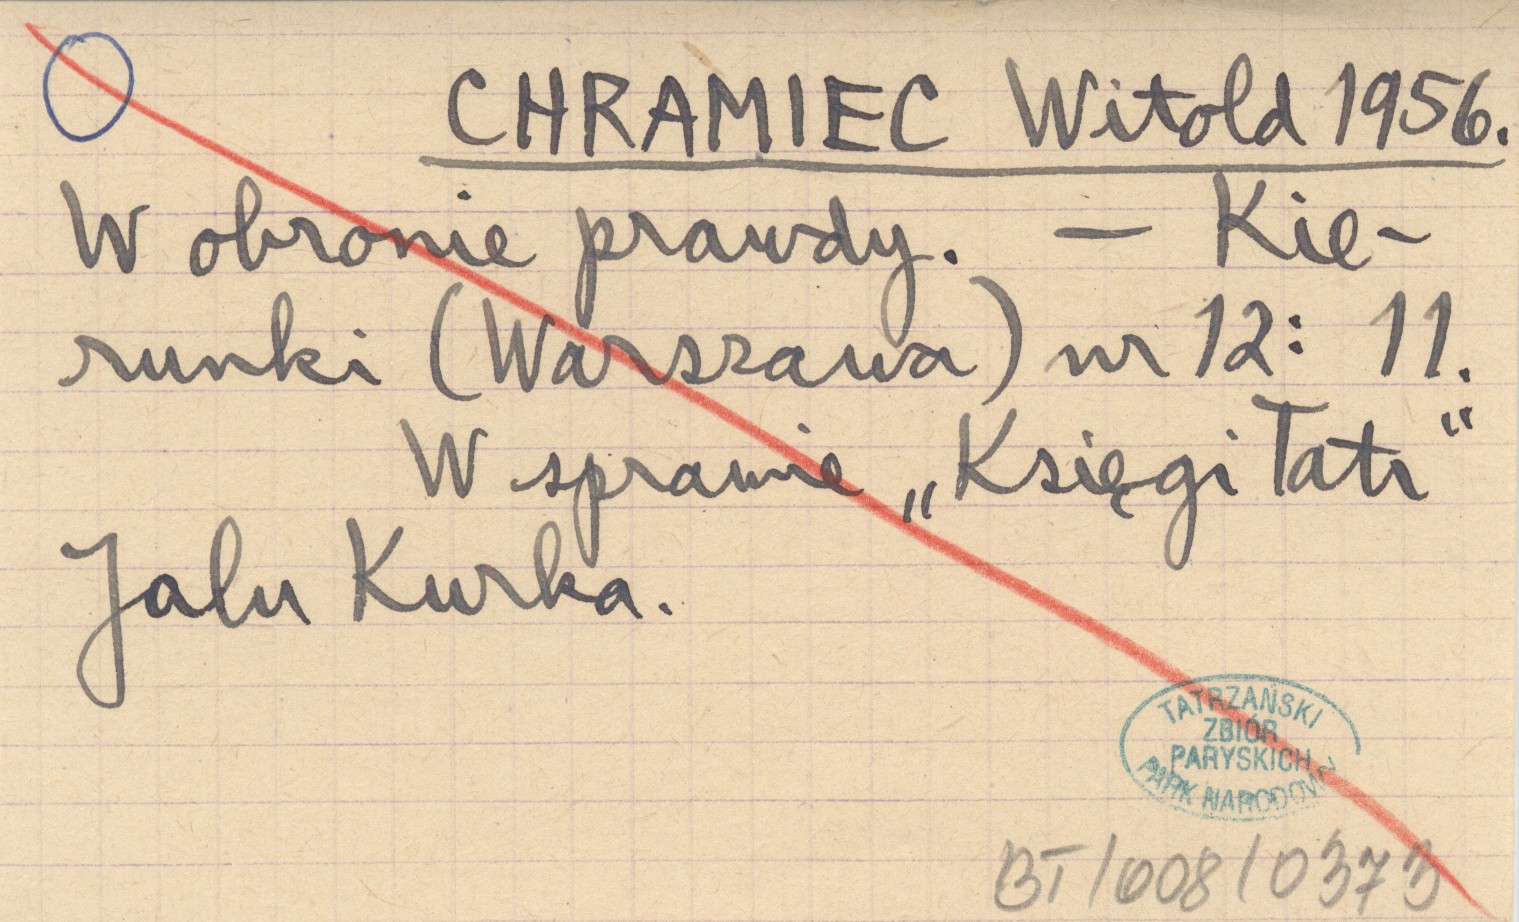 CHRAMIEC Witold 1956.
W obronie prawdy. — Kie-
runki (Warszawa) nr 12: 11.
W sprawie „Księgi Tatr“
Jalu Kurka.
TATRZAŃSKI
ZBIÓR
PARYSKICH
PARK NARODOWY
BT/008/0373